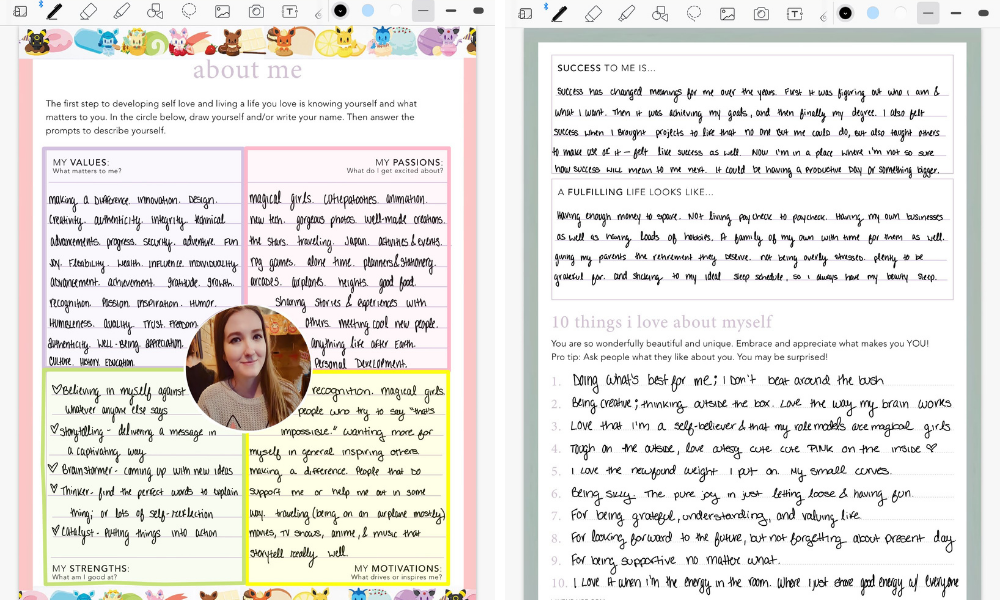 about me
The first step to developing self love and living a life you love is knowing yourself and what
matters to you. In the circle below, draw yourself and/or write your name. Then answer the
prompts to describe yourself.
MY VALUES:
What matters to me?
making a difference. innovation. design.
creativity. authenticity. integrity. technical
advancements. progress. security. adventure. fun
joy. flexibility. wealth. influence. individuality.
advancement. achievement. gratitude. growth.
recognition. passion. inspiration. humor.
humbleness. quality. trust. freedom.
authenticity. well-being. appreciation.
culture. history. education.
MY PASSIONS:
What do I get excited about?
magical girls. catrepatootles. animation.
new tech. gorgeous photos. well-made creations.
the stars. traveling. Japan. activities & events.
rpg games. alone time. planners & stationery.
arcades. airplanes. heights. good food.
sharing stories & experiences with
others. meeting cool new people.
anything life after Earth.
Personal Development.
♡ Believing in myself against
whatever anyone else says
♡ Storytelling - delivering a message in
a captivating way
♡ Brainstormer - coming up with new ideas
♡ Thinker - find the perfect words to explain
thing; or lots of self-reflection
♡ Catalyst - putting things into action
MY STRENGTHS:
What am I good at?
recognition. magical girls.
people who try to say "that's
impossible." wanting more for
myself in general. inspiring others.
making a difference. People that do
support me or help me out in some
way. traveling (being on an airplane mostly)
movies, TV shows, anime, & music that
storytell really well.
MY MOTIVATIONS:
What drives or inspires me?
SUCCESS TO ME IS...
Success has changed meanings for me over the years. First it was figuring out who i am &
what I want. Then it was achieving my goals, and then finally my degree. I also felt
success when I brought projects to life that no one but me could do, but also taught others
to make use of it – felt like success as well. Now i'm in a place where i'm not so sure
how success will mean to me next. It could be having a productive day or something bigger.
A FULFILLING LIFE LOOKS LIKE...
Having enough money to spare. Not living paycheck to paycheck. Having my own businesses
as well as having loads of hobbies. A family of my own with time for them as well.
giving my parents the retirement they deserve. not being overly stressed. plenty to be
grateful for. and sticking to my ideal sleep schedule, so i always have my beauty sleep.
10 things i love about myself
You are so wonderfully beautiful and unique. Embrace and appreciate what makes you YOU!
Pro tip: Ask people what they like about you. You may be surprised!
1. Doing what's best for me; I don't beat around the bush
2. Being creative; thinking outside the box. Love the way my brain works
3. Love that I'm a self-believer & that my role models are magical girls
4. Tough on the outside, love artsy cute cute PINK on the inside ♡
5. I love the newfound weight I put on. My small curves.
6. Being silly. The pure joy in just letting loose & having fun.
7. For being grateful, understanding, and valuing life.
8. For looking forward to the future, but not forgetting about present day
9. For being supportive no matter what.
10. I love it when i'm the energy in the room. Where I just share good energy w/ everyone